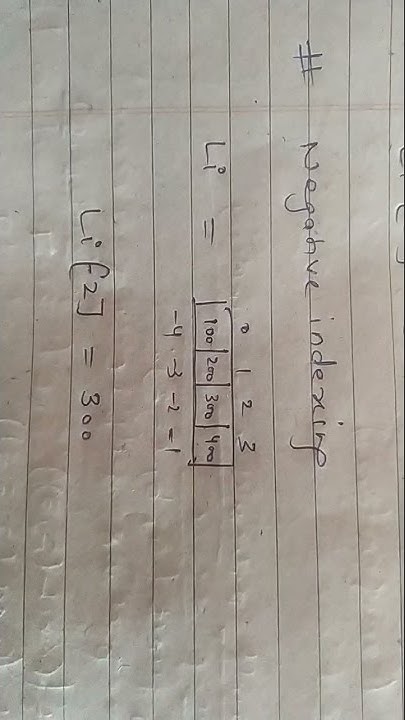 # Negative indexing
0 1 2 3
Li = 100 200 300 400
-4 -3 -2 -1
Li[-2] = 300